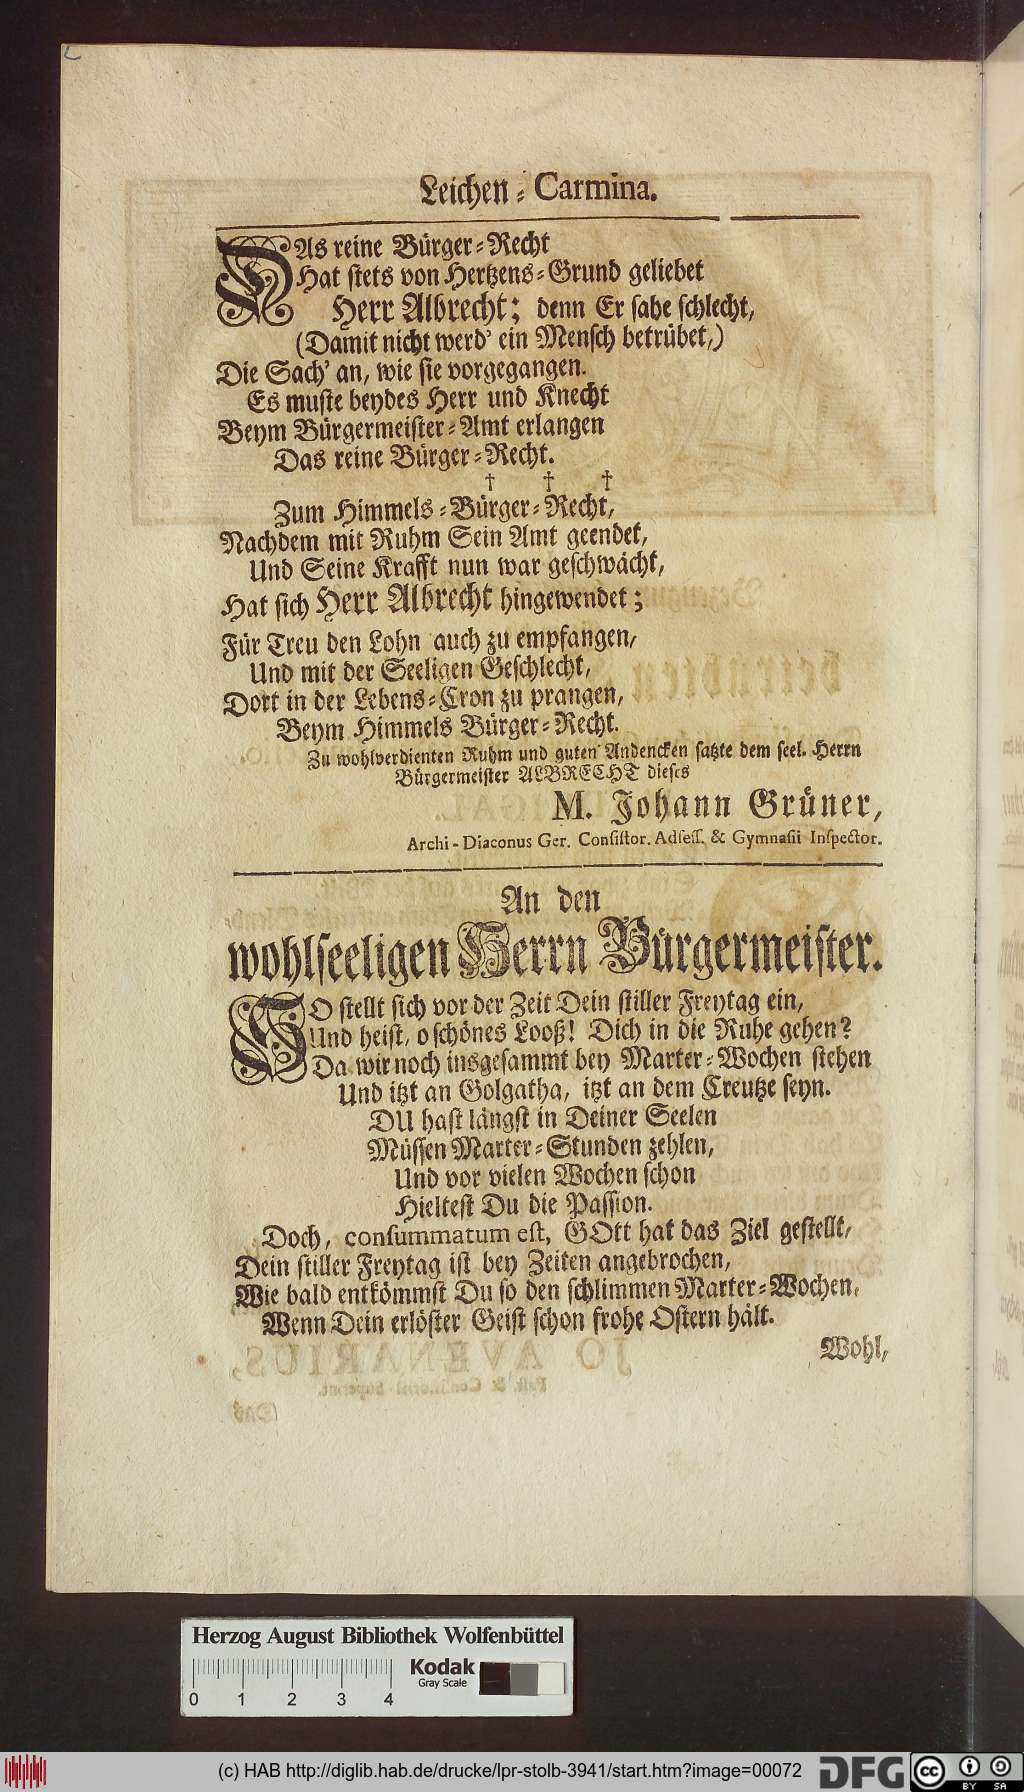 Leichen-Carmina.
DAs reine Bürger-Recht
Hat stets von Hertzens-Grund geliebet
Herr Albrecht; denn Er sahe schlecht,
(Damit nicht werd' ein Mensch betrübet,)
Die Sach' an, wie sie vorgegangen.
Es muste beydes Herr und Knecht
Beym Bürgermeister-Amt erlangen
Das reine Bürger-Recht.
† † †
Zum Himmels-Bürger-Recht,
Nachdem mit Ruhm Sein Amt geendet,
Und Seine Krafft nun war geschwächt,
Hat sich Herr Albrecht hingewendet;
Für Treu den Lohn auch zu empfangen,
Und mit der Seeligen Geschlecht,
Dort in der Lebens-Cron zu prangen,
Beym Himmels Bürger-Recht.
Zu wohlverdienten Ruhm und guten Andencken satzte dem seel. Herrn
Bürgermeister ALBRECHT dieses
M. Johann Grüner,
Archi-Diaconus Ger. Consistor. Adsess. & Gymnasii Inspector.
An den
wohlseeligen Herrn Bürgermeister.
SO stellt sich vor der Zeit Dein stiller Freytag ein,
Und heist, o schönes Looß! Dich in die Ruhe gehen?
Da wir noch insgesammt bey Marter-Wochen stehen
Und itzt an Golgatha, itzt an dem Creutze seyn.
DU hast längst in Deiner Seelen
Müssen Marter-Stunden zehlen,
Und vor vielen Wochen schon
Hieltest Du die Passion.
Doch, consummatum est, GOtt hat das Ziel gestellt,
Dein stiller Freytag ist bey Zeiten angebrochen,
Wie bald entkömmst Du so den schlimmen Marter-Wochen,
Wenn Dein erlöster Geist schon frohe Ostern hält.
Wohl,
Herzog August Bibliothek Wolfenbüttel
Kodak
Gray Scale
0 1 2 3 4
(c) HAB http://diglib.hab.de/drucke/lpr-stolb-3941/start.htm?image=00072
DFG
cc
BY SA